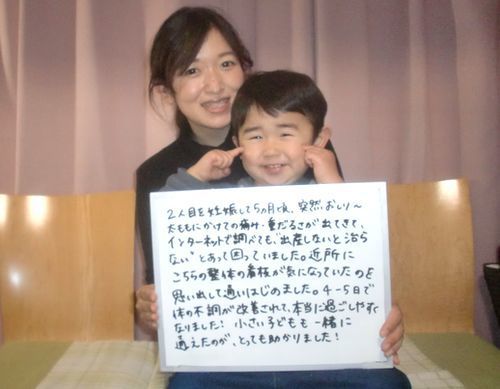 2人目を妊娠して5ヵ月頃、突然おしり〜
太ももにかけての痛み・重だるさが出てきて、
インターネットで調べても、"出産しないと治ら
ない"とあって困っていました。近所に
こちらの整体の看板が気になっていたのを
思い出して通いはじめました。4-5日で
体の不調が改善されて、本当に過ごしやすく
なりました! 小さい子どもも一緒に
通えたのが、とっても助かりました!